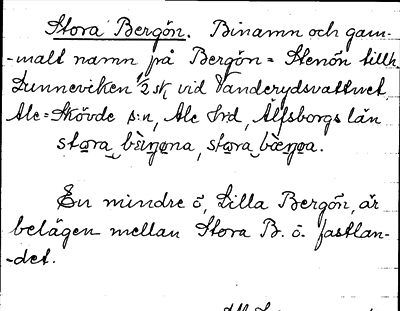 Stora Bergön. Binamn och gam-
-malt namn på Bergön = Stenön tillh.
Lunneviken 1/2 sk vid Vanderydsvattnet
Ale=Skövde s:n, Ale hrd, Älfsborgs län
En mindre ö, Lilla Bergön, är
belägen mellan Stora B. o. fastlan-
-det.